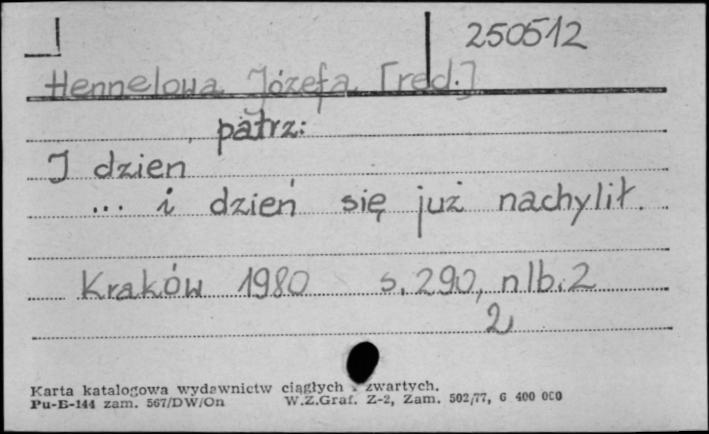 250512
Hennelowa Józefa [red.]
patrz:
I dzien
... i dzień się już nachylił.
Kraków 1980 s. 290, nlb. 2
2
Karta katalogowa wydawnictw ciągłych i zwartych.
Pu-B-144 zam. 567/DW/On W.Z.Graf. Z-2, Zam. 502/77, 6 400 000